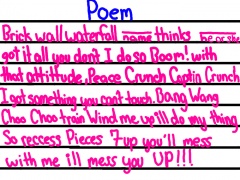 Poem
Brick wall waterfall name thinks he or she
got it all you dont I do so Boom! with
that attittude, Peace Crunch Captin Crunch
I got something you can't touch. Bang Wang
Choo Choo train Wind me up ill do my thing
So reccess Pieces 7up you'll mess
with me ill mess you UP!!!